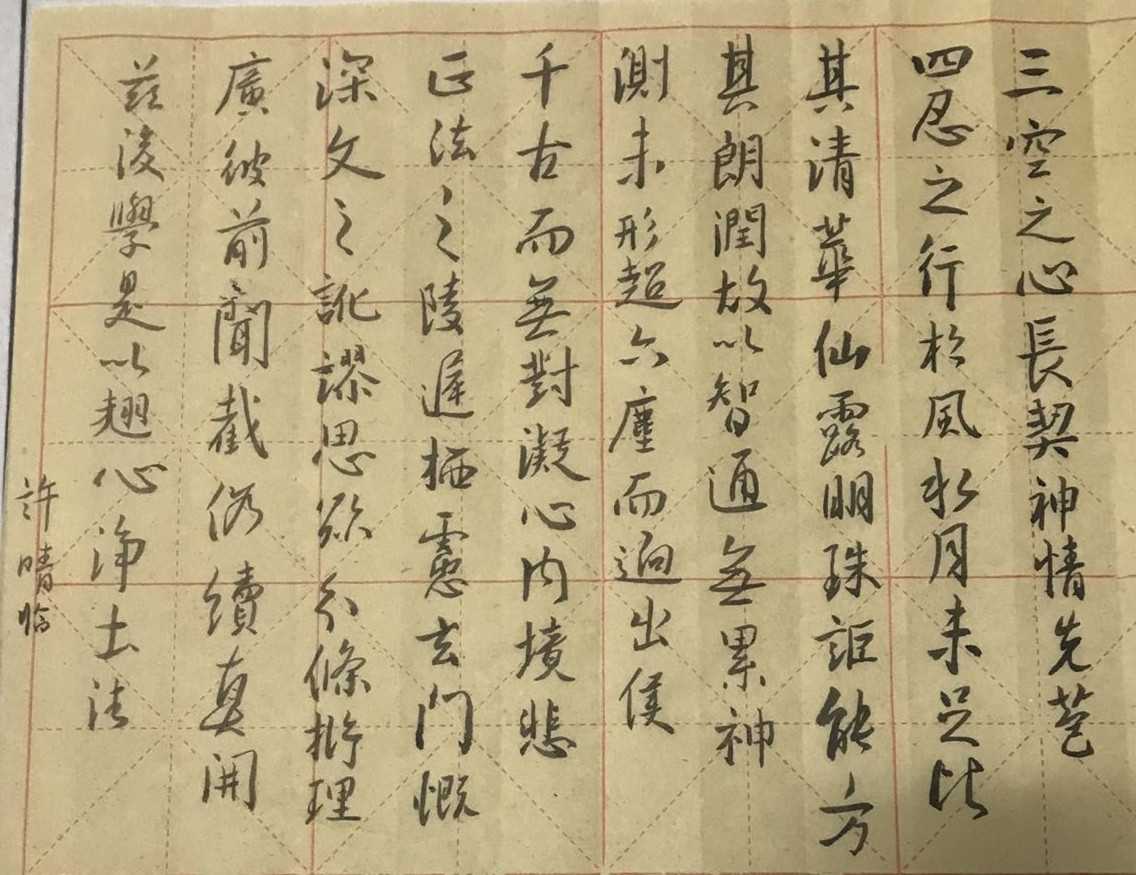 三空之心長契神情先苞
四忍之行松風水月未足比
其清華仙露明珠詎能方
其朗潤故以智通無累神
測未形超六塵而迥出隻
千古而無對凝心內境悲
正法之陵遲栖慮玄門慨
深文之訛謬思欲分條析理
廣彼前聞截偽續真開
茲後學是以翹心淨土法
許晴臨